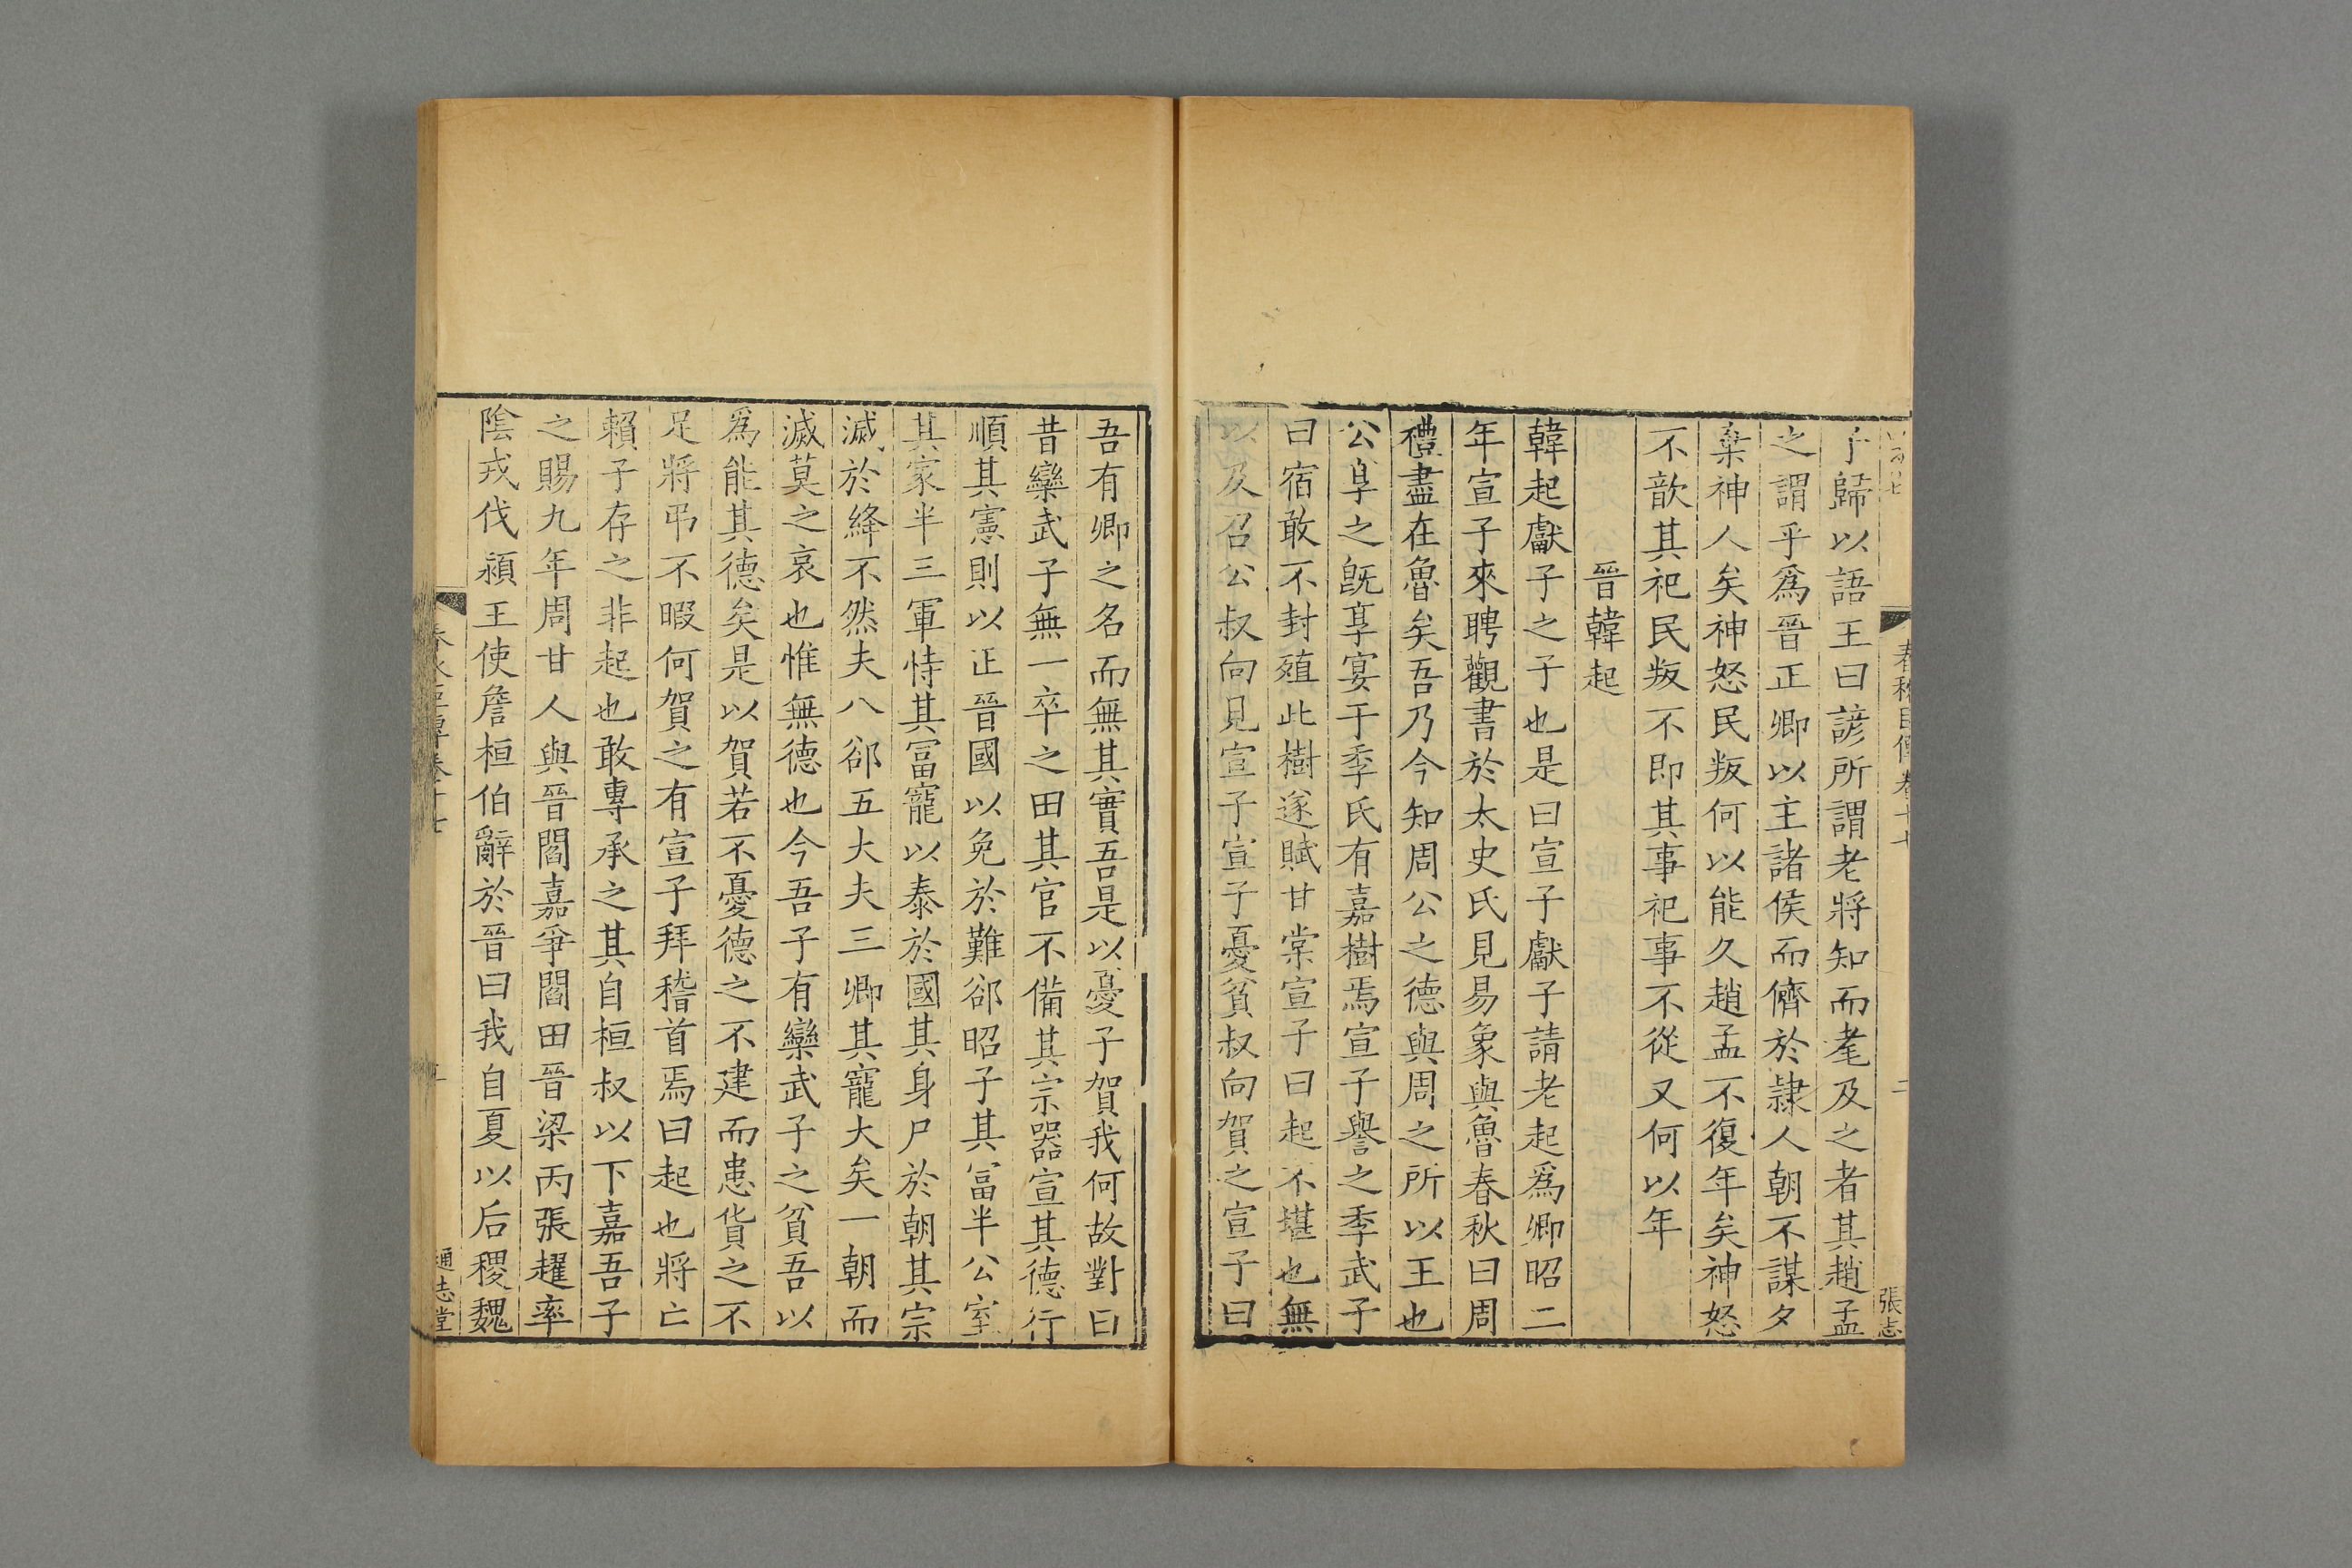 子歸以語王曰諺所謂老將知而耄及之者其趙孟
之謂乎爲晉正卿以主諸侯而儕於隸人朝不謀夕
棄神人矣神怒民叛何以能久趙孟不復年矣神怒
不歆其祀民叛不即其事祀事不從又何以年
晉韓起
韓起獻子之子也是曰宣子獻子請老起爲卿昭二
年宣子來聘觀書於太史氏見易象與魯春秋曰周
禮盡在魯矣吾乃今知周公之德與周之所以王也
公享之旣享宴于季氏有嘉樹焉宣子譽之季武子
曰宿敢不封殖此樹遂賦甘棠宣子曰起不堪也無
以及召公叔向見宣子宣子憂貧叔向賀之宣子曰
吾有卿之名而無其實吾是以憂子賀我何故對曰
昔欒武子無一卒之田其官不備其宗器宣其德行
順其憲則以正晉國以免於難郤昭子其富半公室
其家半三軍恃其富寵以泰於國其身尸於朝其宗
滅於絳不然夫八郤五大夫三卿其寵大矣一朝而
滅莫之哀也惟無德也今吾子有欒武子之貧吾以
爲能其德矣是以賀若不憂德之不建而患貨之不
足將弔不暇何賀之有宣子拜稽首焉曰起也將亡
賴子存之非起也敢專承之其自桓叔以下嘉吾子
之賜九年周甘人與晉閻嘉爭閻田晉梁丙張趯率
陰戎伐潁王使詹桓伯辭於晉曰我自夏以后稷魏
春秋臣傳卷十七
二
張志
通志堂